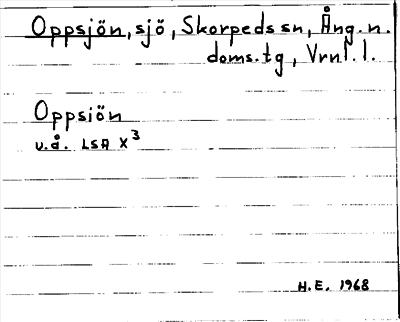 Oppsjön, sjö, Skorpeds sn, Ång. n.
doms. tg, Vrnl. l.
Oppsiön
u.å. LSA X³
H.E. 1968